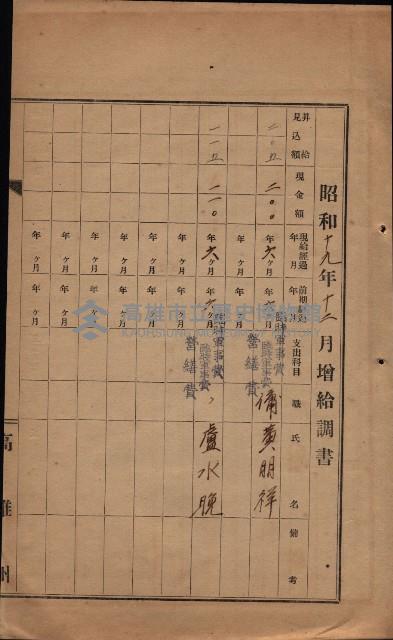 昭和十九年十二月增給調書
昇給見込額
現金額
現給經過年月
前期
年月
支出科目
職氏名
備考
二〇五
二〇〇
年六ヶ月
年六ヶ月
臨時軍事費
營繕費
補黃朋祥
年ヶ月
年ヶ月
一一五
一一〇
年六ヶ月
年六ヶ月
臨時軍事費
營繕費
〃盧水晚
年ヶ月
年ヶ月
年ヶ月
年ヶ月
年ヶ月
年ヶ月
年ヶ月
年ヶ月
年ヶ月
年ヶ月
年ヶ月
年ヶ月
高雄州
高雄市立歷史博物館
KAOHSIUNG MUSEUM OF HISTORY